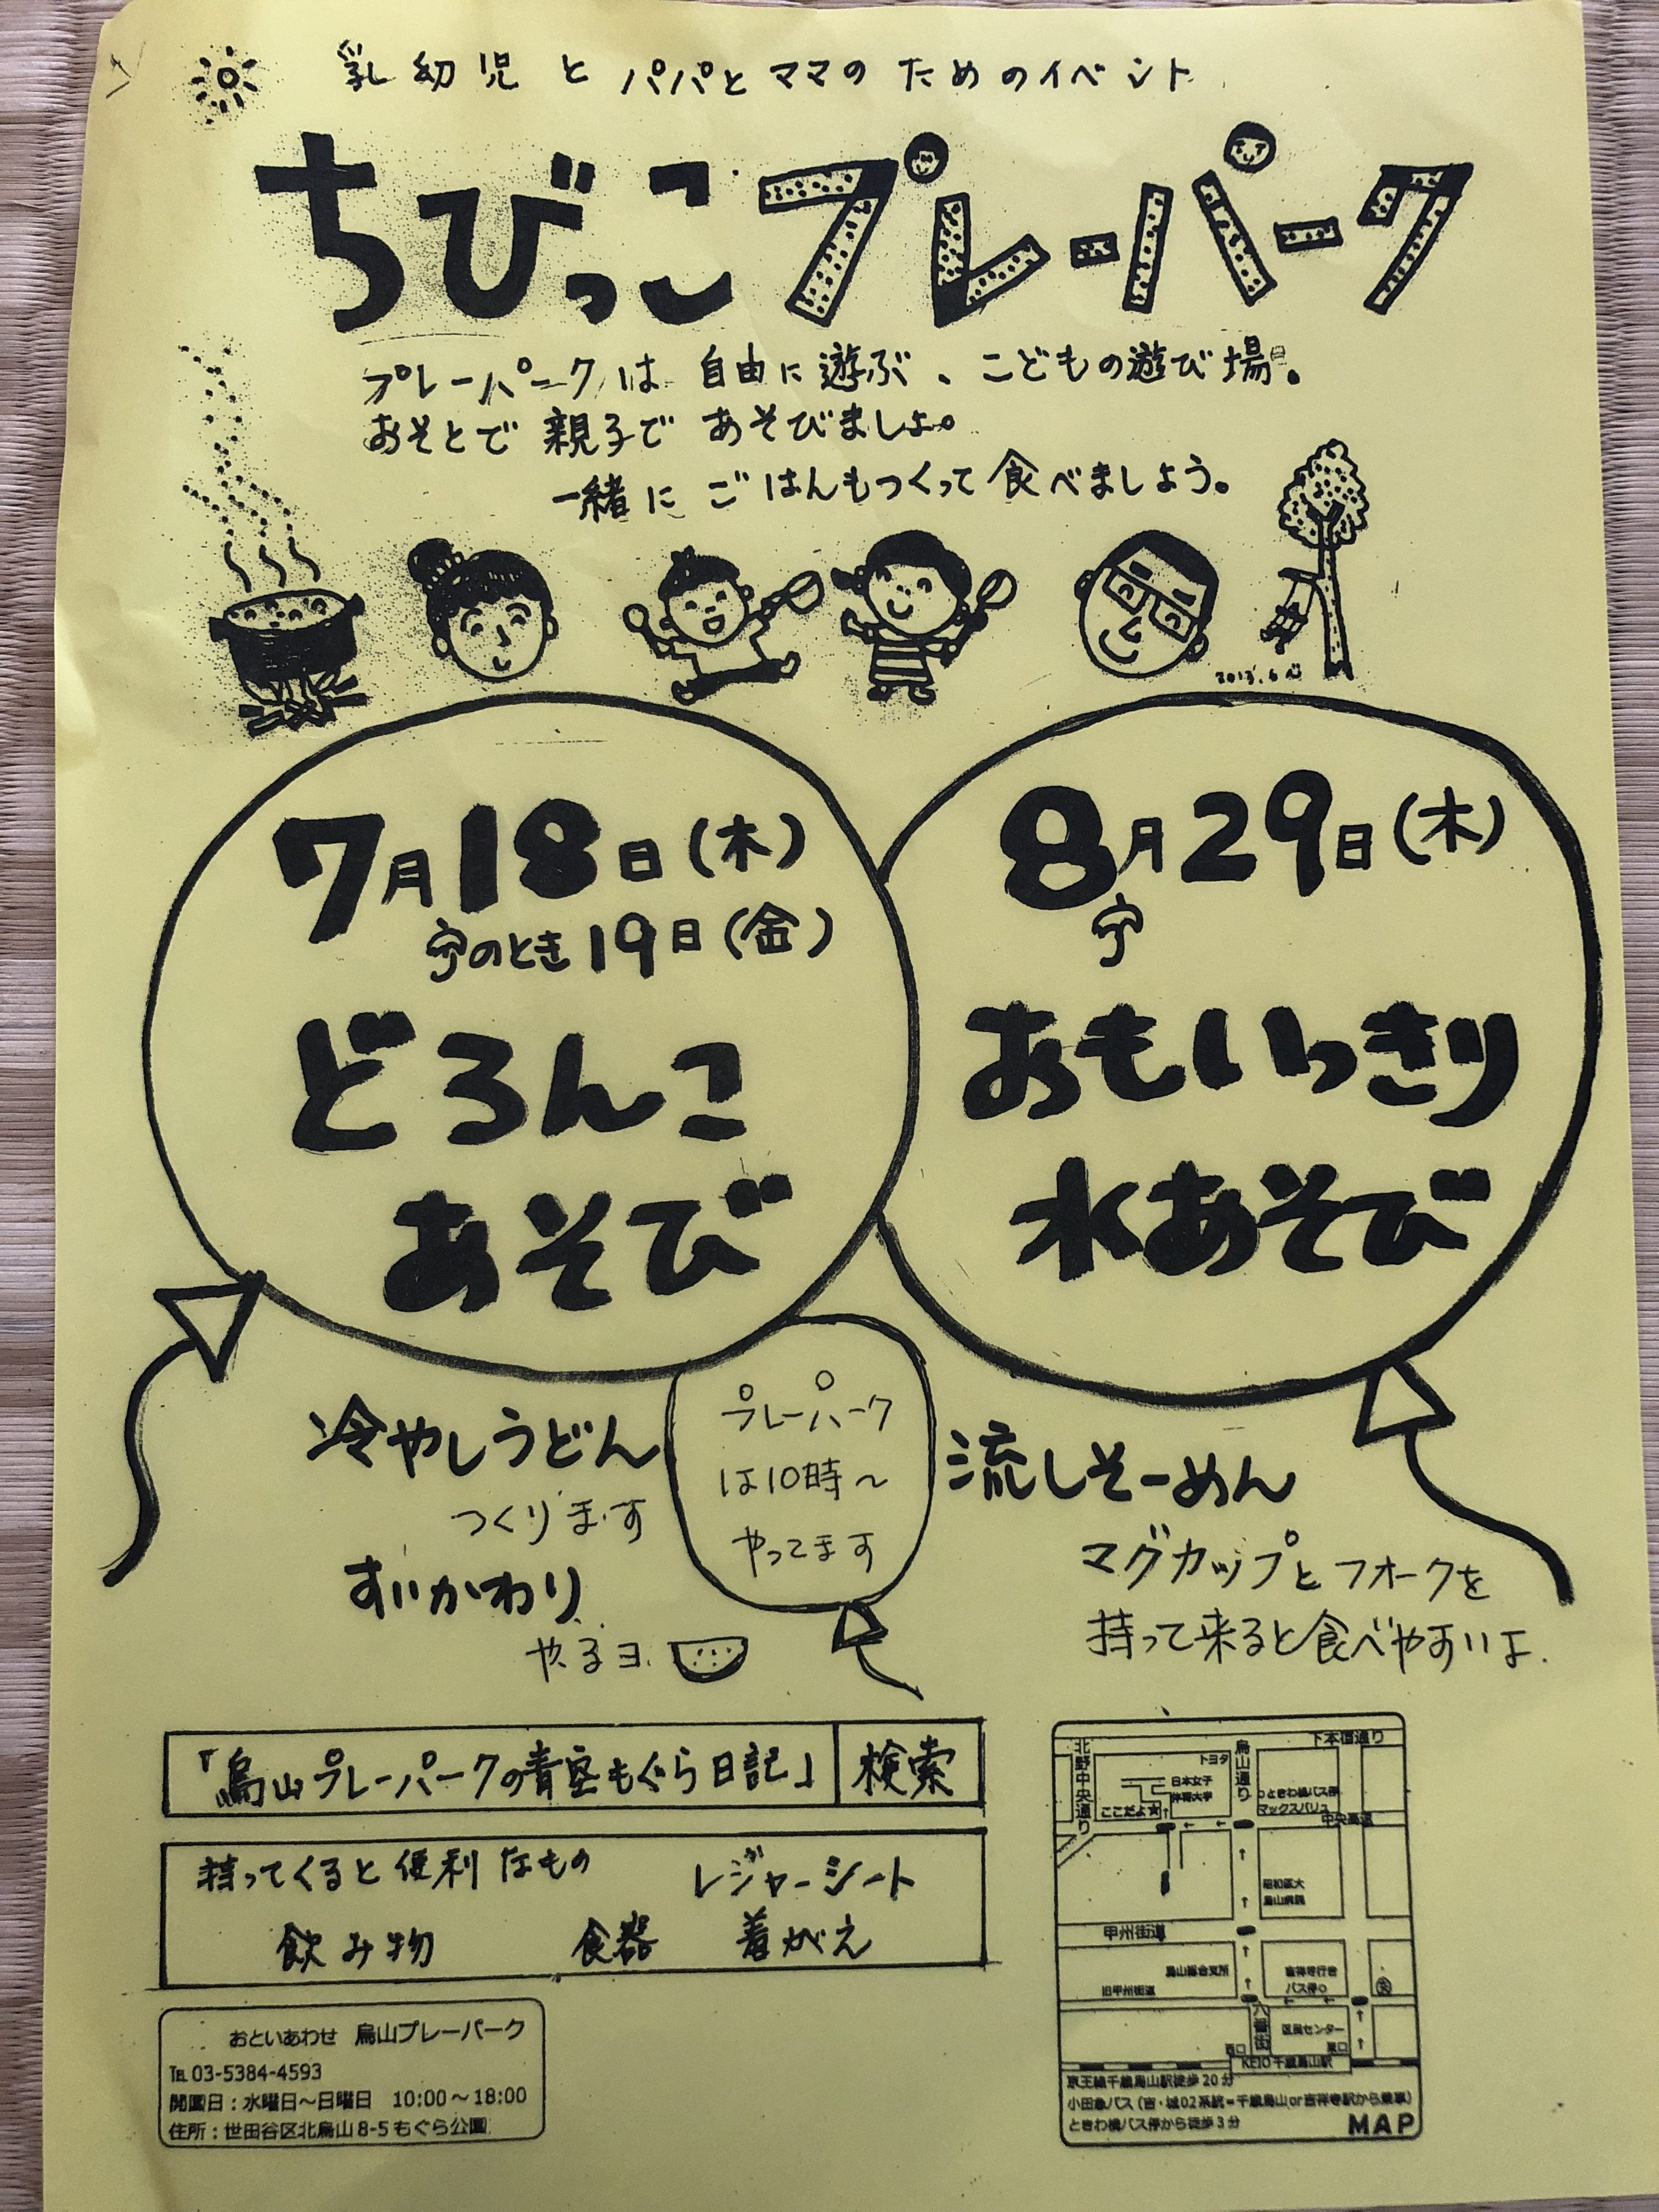 乳幼児とパパとママのためのイベント
ちびっこプレーパーク
プレーパークは自由に遊ぶ、こどもの遊び場。
おそとで親子であそびましょ。
一緒にごはんもつくって食べましょう。
7月18日(木)
のとき19日(金)
どろんこ
あそび
8月29日(木)
おもいっきり
水あそび
冷やしうどん
つくります
すいかわり
やるヨ
プレーパーク
は10時〜
やってます
流しそーめん
マグカップとフォークを
持って来ると食べやすいよ.
「烏山プレーパークの青空もぐら日記」 検索
持ってくると便利なもの レジャーシート
飲み物 食器 着がえ
おといあわせ 烏山プレーパーク
℡ 03-5384-4593
開園日：水曜日〜日曜日 10:00〜18:00
住所：世田谷区北烏山8-5もぐら公園
下本宿通り
北野中央通り
トヨタ
烏山通り
日本女子
体育大学
ここだよ★
ときわ橋バス停
マックスバリュ
中央高速
昭和医大
烏山病院
甲州街道
烏山総合支所
吉祥寺行き
バス停
旧甲州街道
六番街
区民センター
西口
東口
KEIO千歳烏山駅
京王線千歳烏山駅徒歩20分
小田急バス（吉・城02系統＝千歳烏山or吉祥寺駅から乗車）
ときわ橋バス停から徒歩3分
MAP